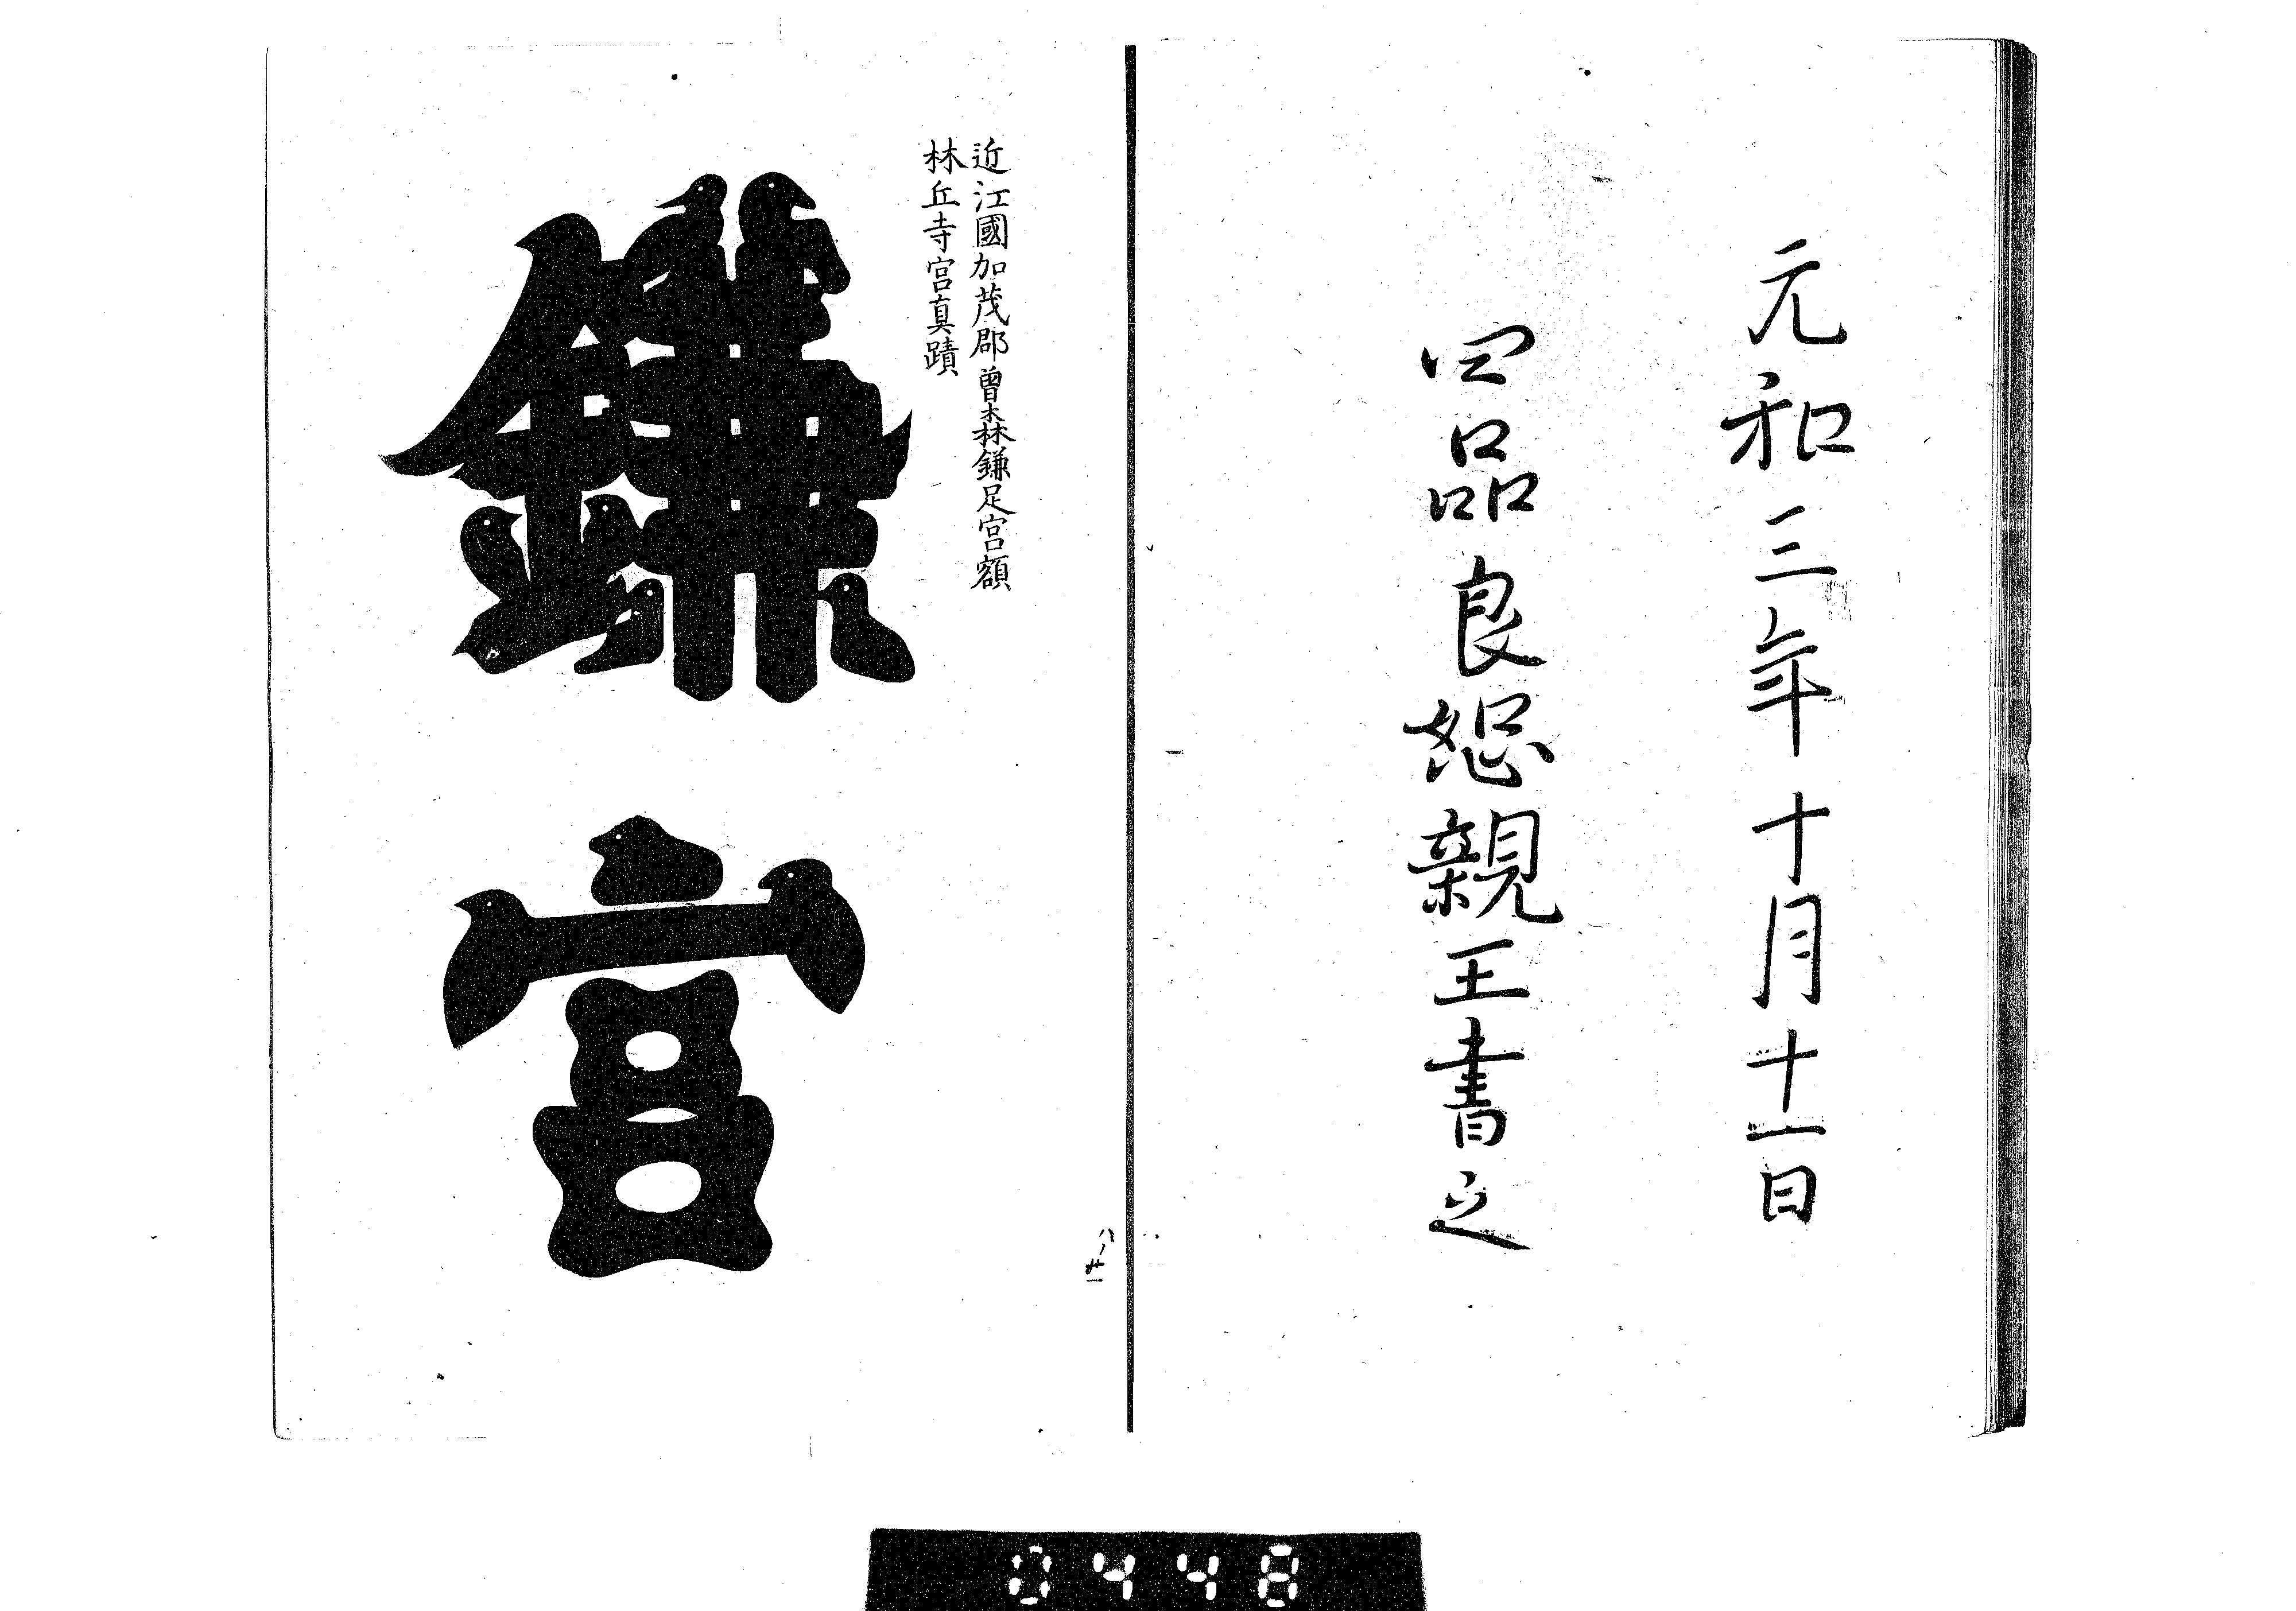 元和三年十月十一日
四品良恕親王書之
近江國加茂郡曽木森鎌足宮額
林丘寺宮真蹟
鎌宮
八ノ廿一
0448